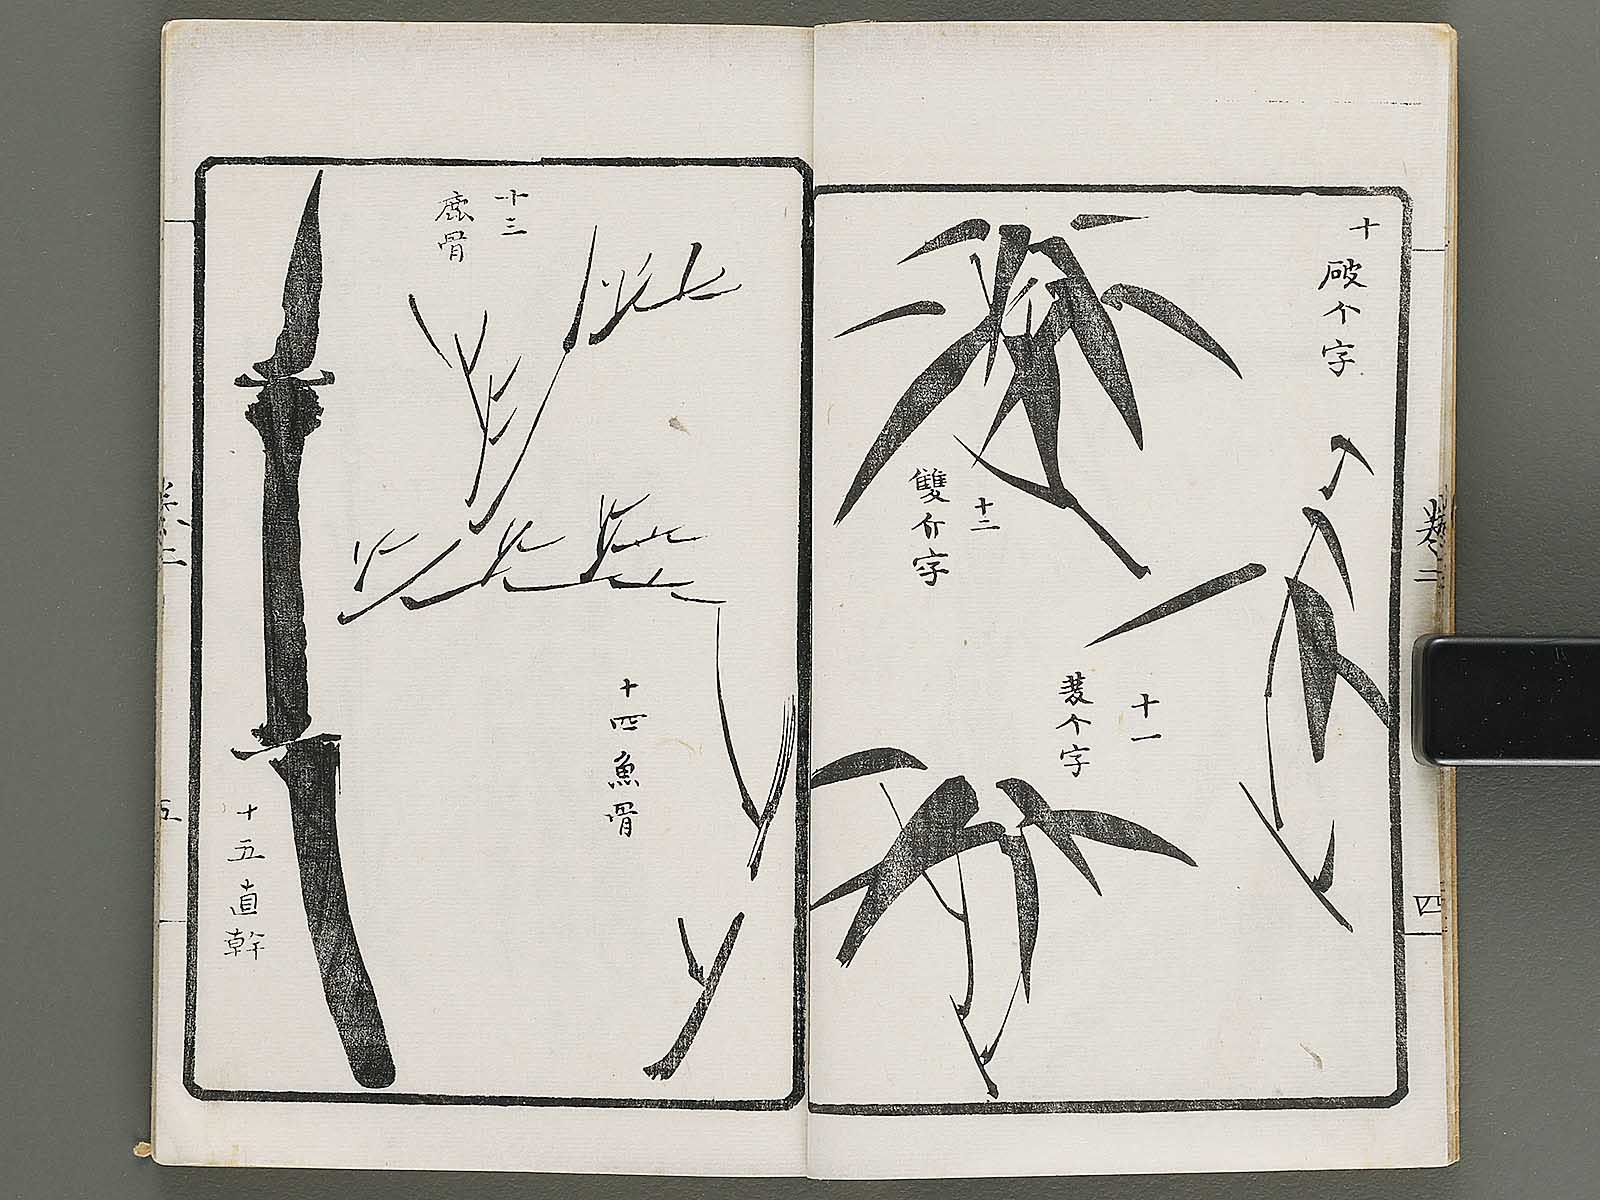 十破个字
十一
䓝个字
十二
雙介字
卷二
四
十三
鹿骨
十四魚骨
十五直幹
卷二
五